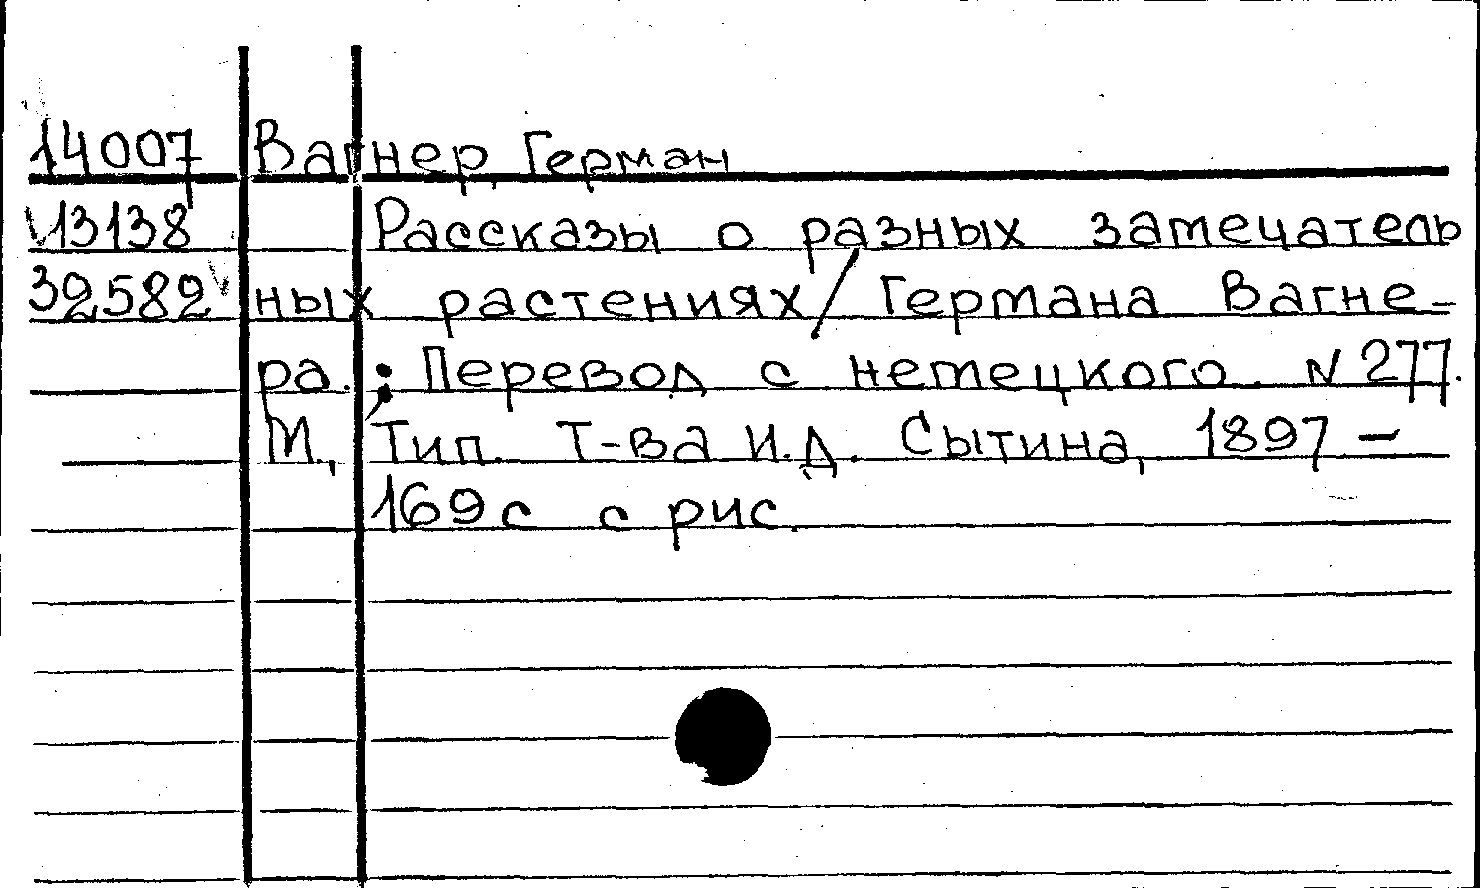 14007 Вагнер, Герман
13138 Рассказы о разных замечатель
32582 ных растениях/ Германа Вагне-
ра. ; Перевод с немецкого. N 277.
М., Тип. Т-ва И.Д. Сытина, 1897 –
169с с рис.